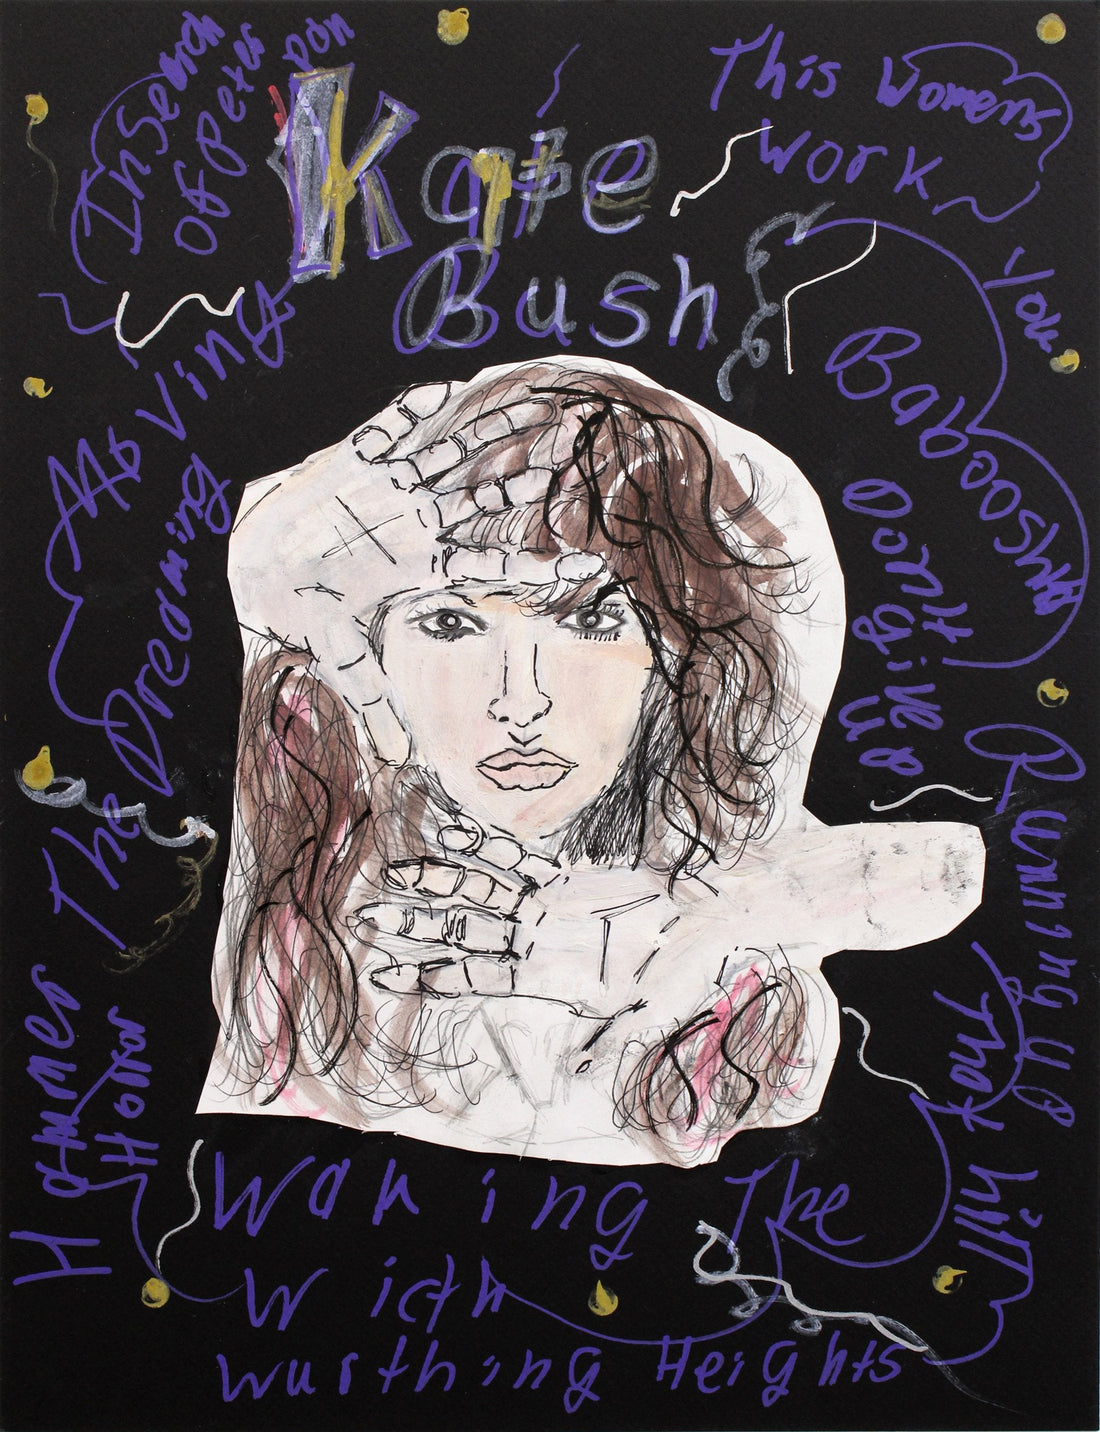 In Search
Of Peter Pan
Kate
Bush
This Womens
Work
Babooshka
Running Up
That
Hill
Moving
The Dreaming
Hammer
Horror
Waking The
Wicth
Wurthing Heights